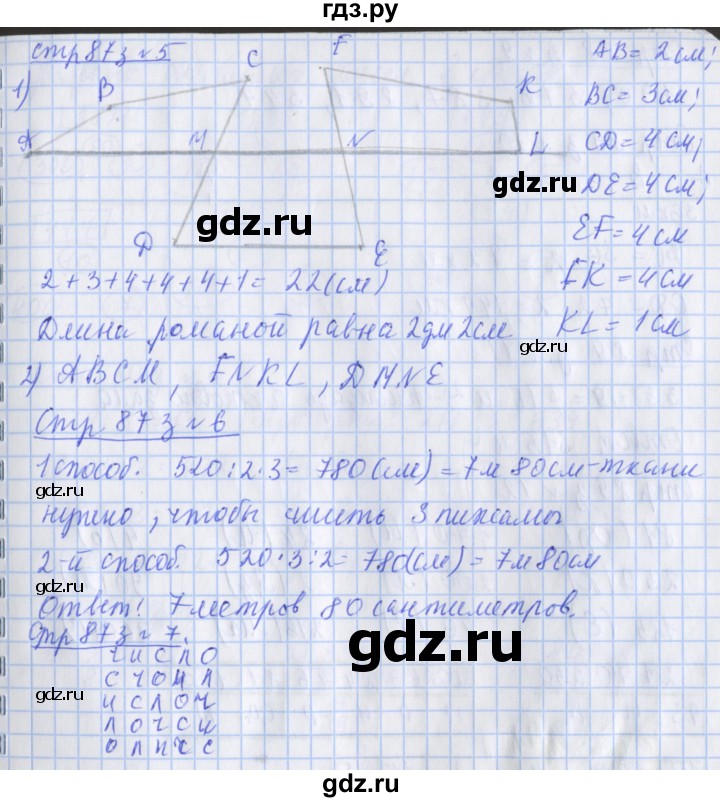 гдз.ру
стр 87 з № 5
1)
A B C F K
M N L
D E
AB = 2 см;
BC = 3 см;
CD = 4 см;
DE = 4 см;
EF = 4 см
FK = 4 см
KL = 1 см
gdz.ru
gdz.ru
2 + 3 + 4 + 4 + 4 + 1 = 22 (см)
Длина ломаной равна 2 дм 2 см
2) ABCM, FNKL, DMNE
gdz.ru
Стр 87 з № 6
1 способ. 520 : 2 · 3 = 780 (см) = 7 м 80 см - ткани
нужно, чтобы сшить 3 пижамы
gdz.ru
2-й способ. 520 · 3 : 2 = 780 (см) = 7 м 80 см
gdz.ru
Ответ: 7 метров 80 сантиметров.
Стр 87 з № 7.
ч и с л о
gdz.ru
gdz.ru
и с л о ч
л о ч с и
gdz.ru